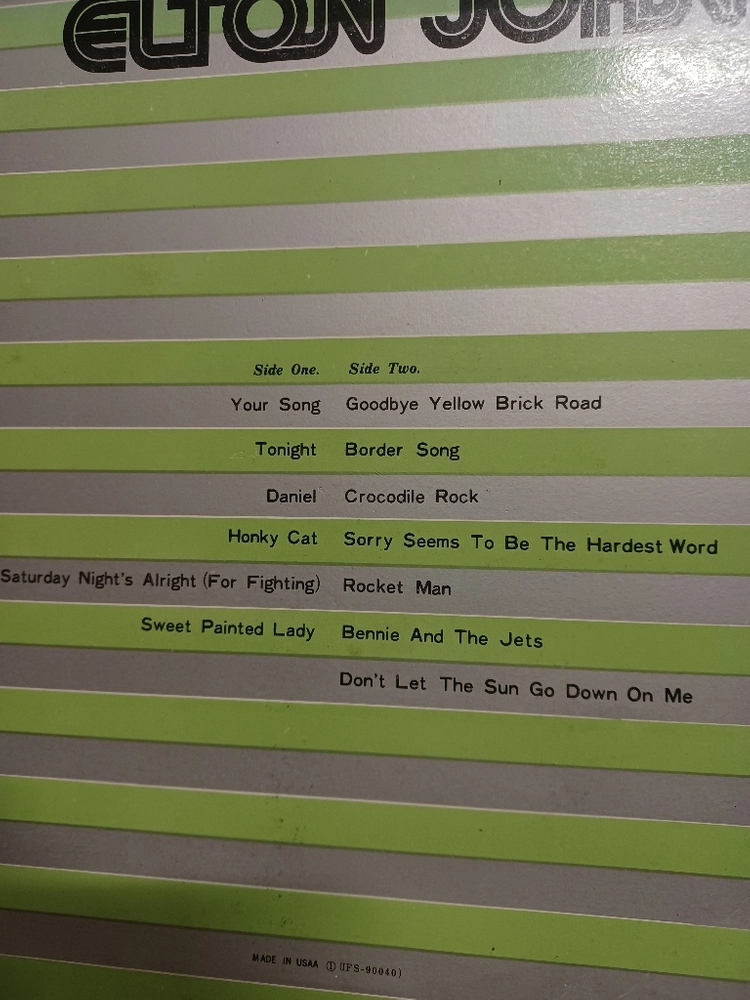 ELTON JOHN
Side One. Side Two.
Your Song Goodbye Yellow Brick Road
Tonight Border Song
Daniel Crocodile Rock
Honky Cat Sorry Seems To Be The Hardest Word
Saturday Night's Alright (For Fighting) Rocket Man
Sweet Painted Lady Bennie And The Jets
Don't Let The Sun Go Down On Me
MADE IN USAA Ⓘ (IFS-90040)